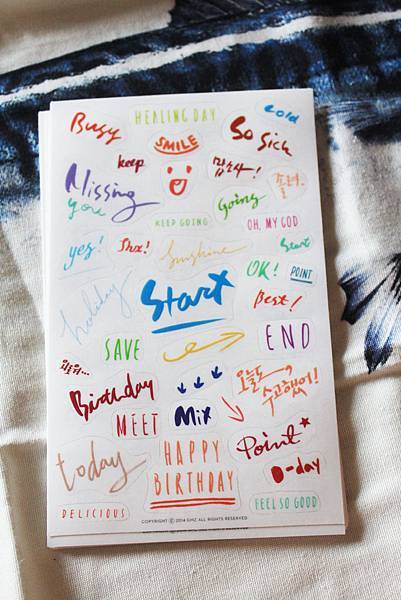 HEALING DAY
cold
Busy
SMILE
So Sick
keep
Missing
you
Going
KEEP GOING
OH, MY GOD
yes!
Sunshine
Start
OK!
POINT
holiday
Start
Best!
SAVE
END
Birthday
오늘도
수고했어!
MEET
Mix
Point*
today
HAPPY
BIRTHDAY
D-day
DELICIOUS
FEEL SO GOOD
COPYRIGHT ⓒ 2014 GMZ ALL RIGHTS RESERVED